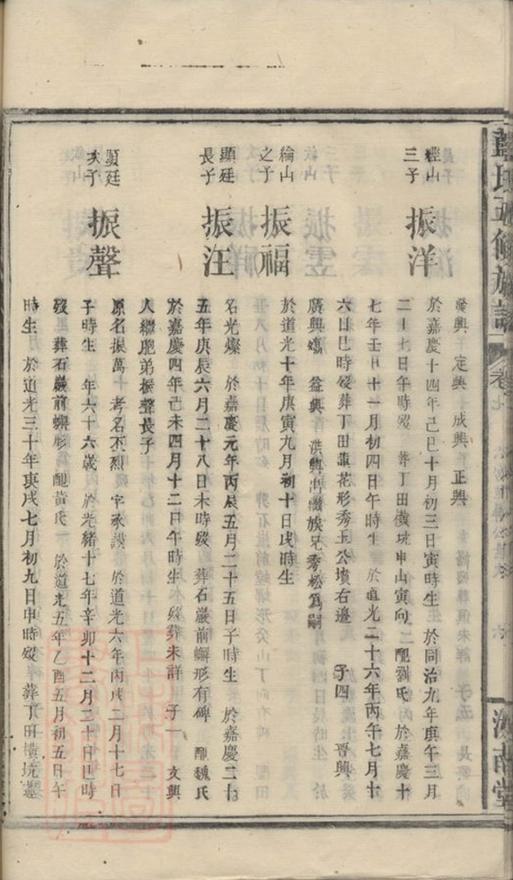 氏五修族譜 卷七
濟南堂
廣興 定興 成興 正興
經山
三子
振洋
於嘉慶十四年己巳十月初三日寅時生 於同治九年庚午三月
二十七日午時歿 葬丁田橫坑申山寅向 配劉氏 於嘉慶十
七年壬申十一月初四日午時生 於道光二十六年丙午七月十
六日巳時歿葬丁田龜花形秀玉公墳右邊 子四 晋興
廣興 益興 洪興出繼族兄秀松為嗣
綸山
之子
振福
於道光十年庚寅九月初十日戌時生
顯廷
長子
振汪
名光燦 於嘉慶元年丙辰五月二十五日子時生 於嘉慶二十
五年庚辰六月二十八日未時歿 葬石巖前螂形有碑 配魏氏
於嘉慶四年己未四月十二日午時生 歿葬未詳 子一 文興
入繼胞弟振聲長子
顯廷
次子
振聲
原名振萬 考名丕烈 字承謨 於道光六年丙戌二月十七日
子時生 年六十六歲 於光緒十七年辛卯十二月二十日巳時
歿 葬石巖前螂形 配黃氏 於道光五年乙酉五月初五日午
時生 於道光三十年庚戌七月初九日申時歿 葬丁田橫坑